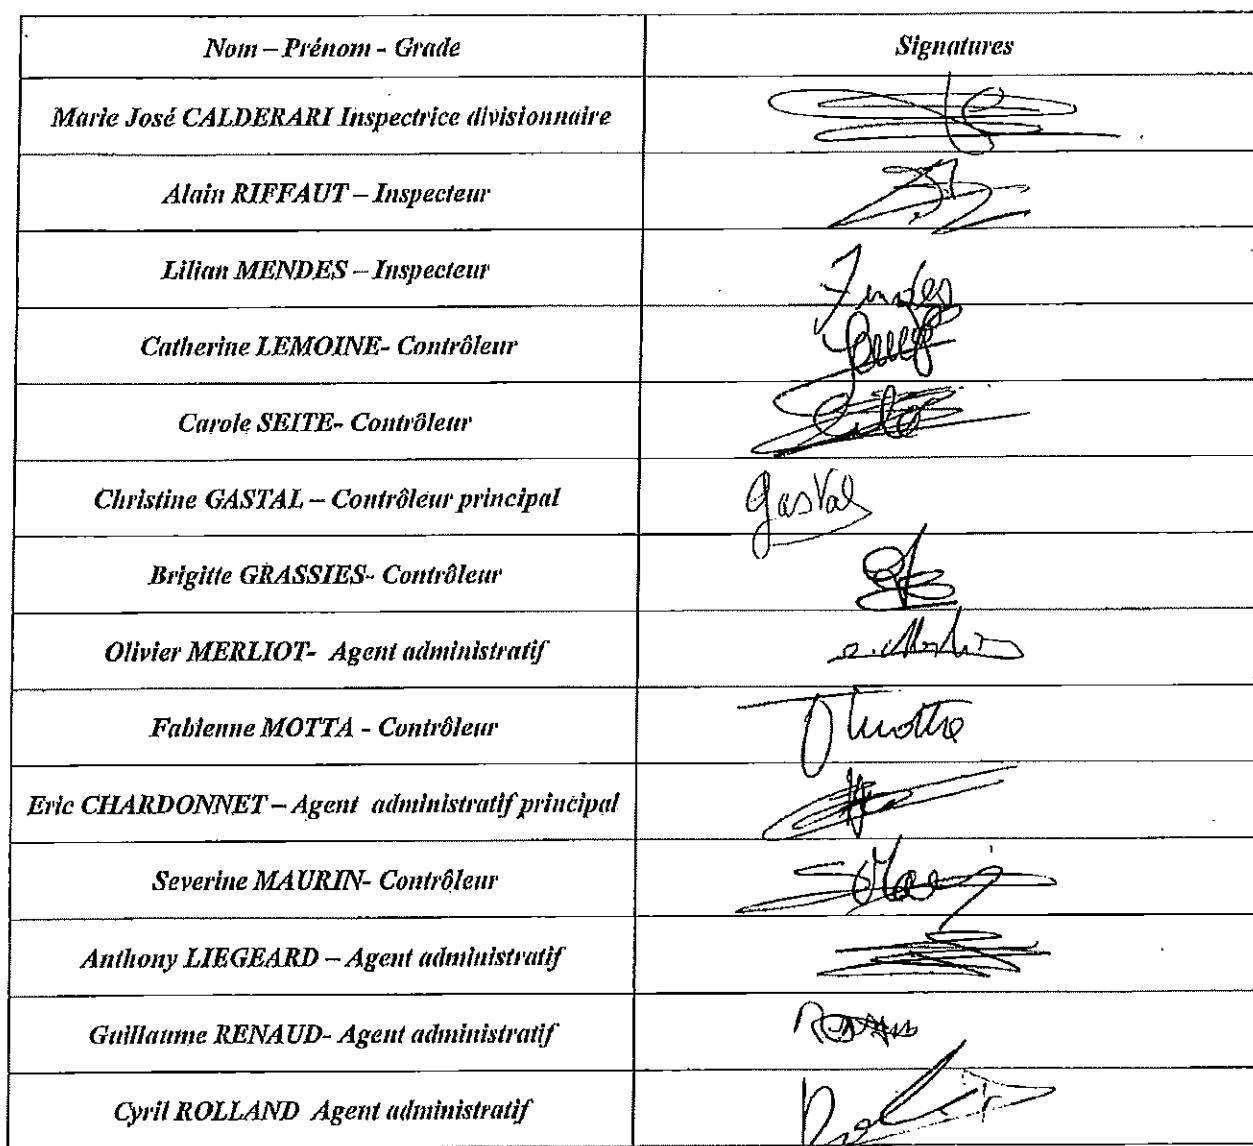 Nom – Prénom - Grade Signatures
Marie José CALDERARI Inspectrice divisionnaire
Alain RIFFAUT – Inspecteur
Lilian MENDES – Inspecteur
Catherine LEMOINE- Contrôleur
Carole SEITE- Contrôleur
Christine GASTAL – Contrôleur principal Gastal
Brigitte GRASSIES- Contrôleur
Olivier MERLIOT- Agent administratif
Fabienne MOTTA - Contrôleur
Eric CHARDONNET – Agent administratif principal
Severine MAURIN- Contrôleur
Anthony LIEGEARD – Agent administratif
Guillaume RENAUD- Agent administratif
Cyril ROLLAND Agent administratif